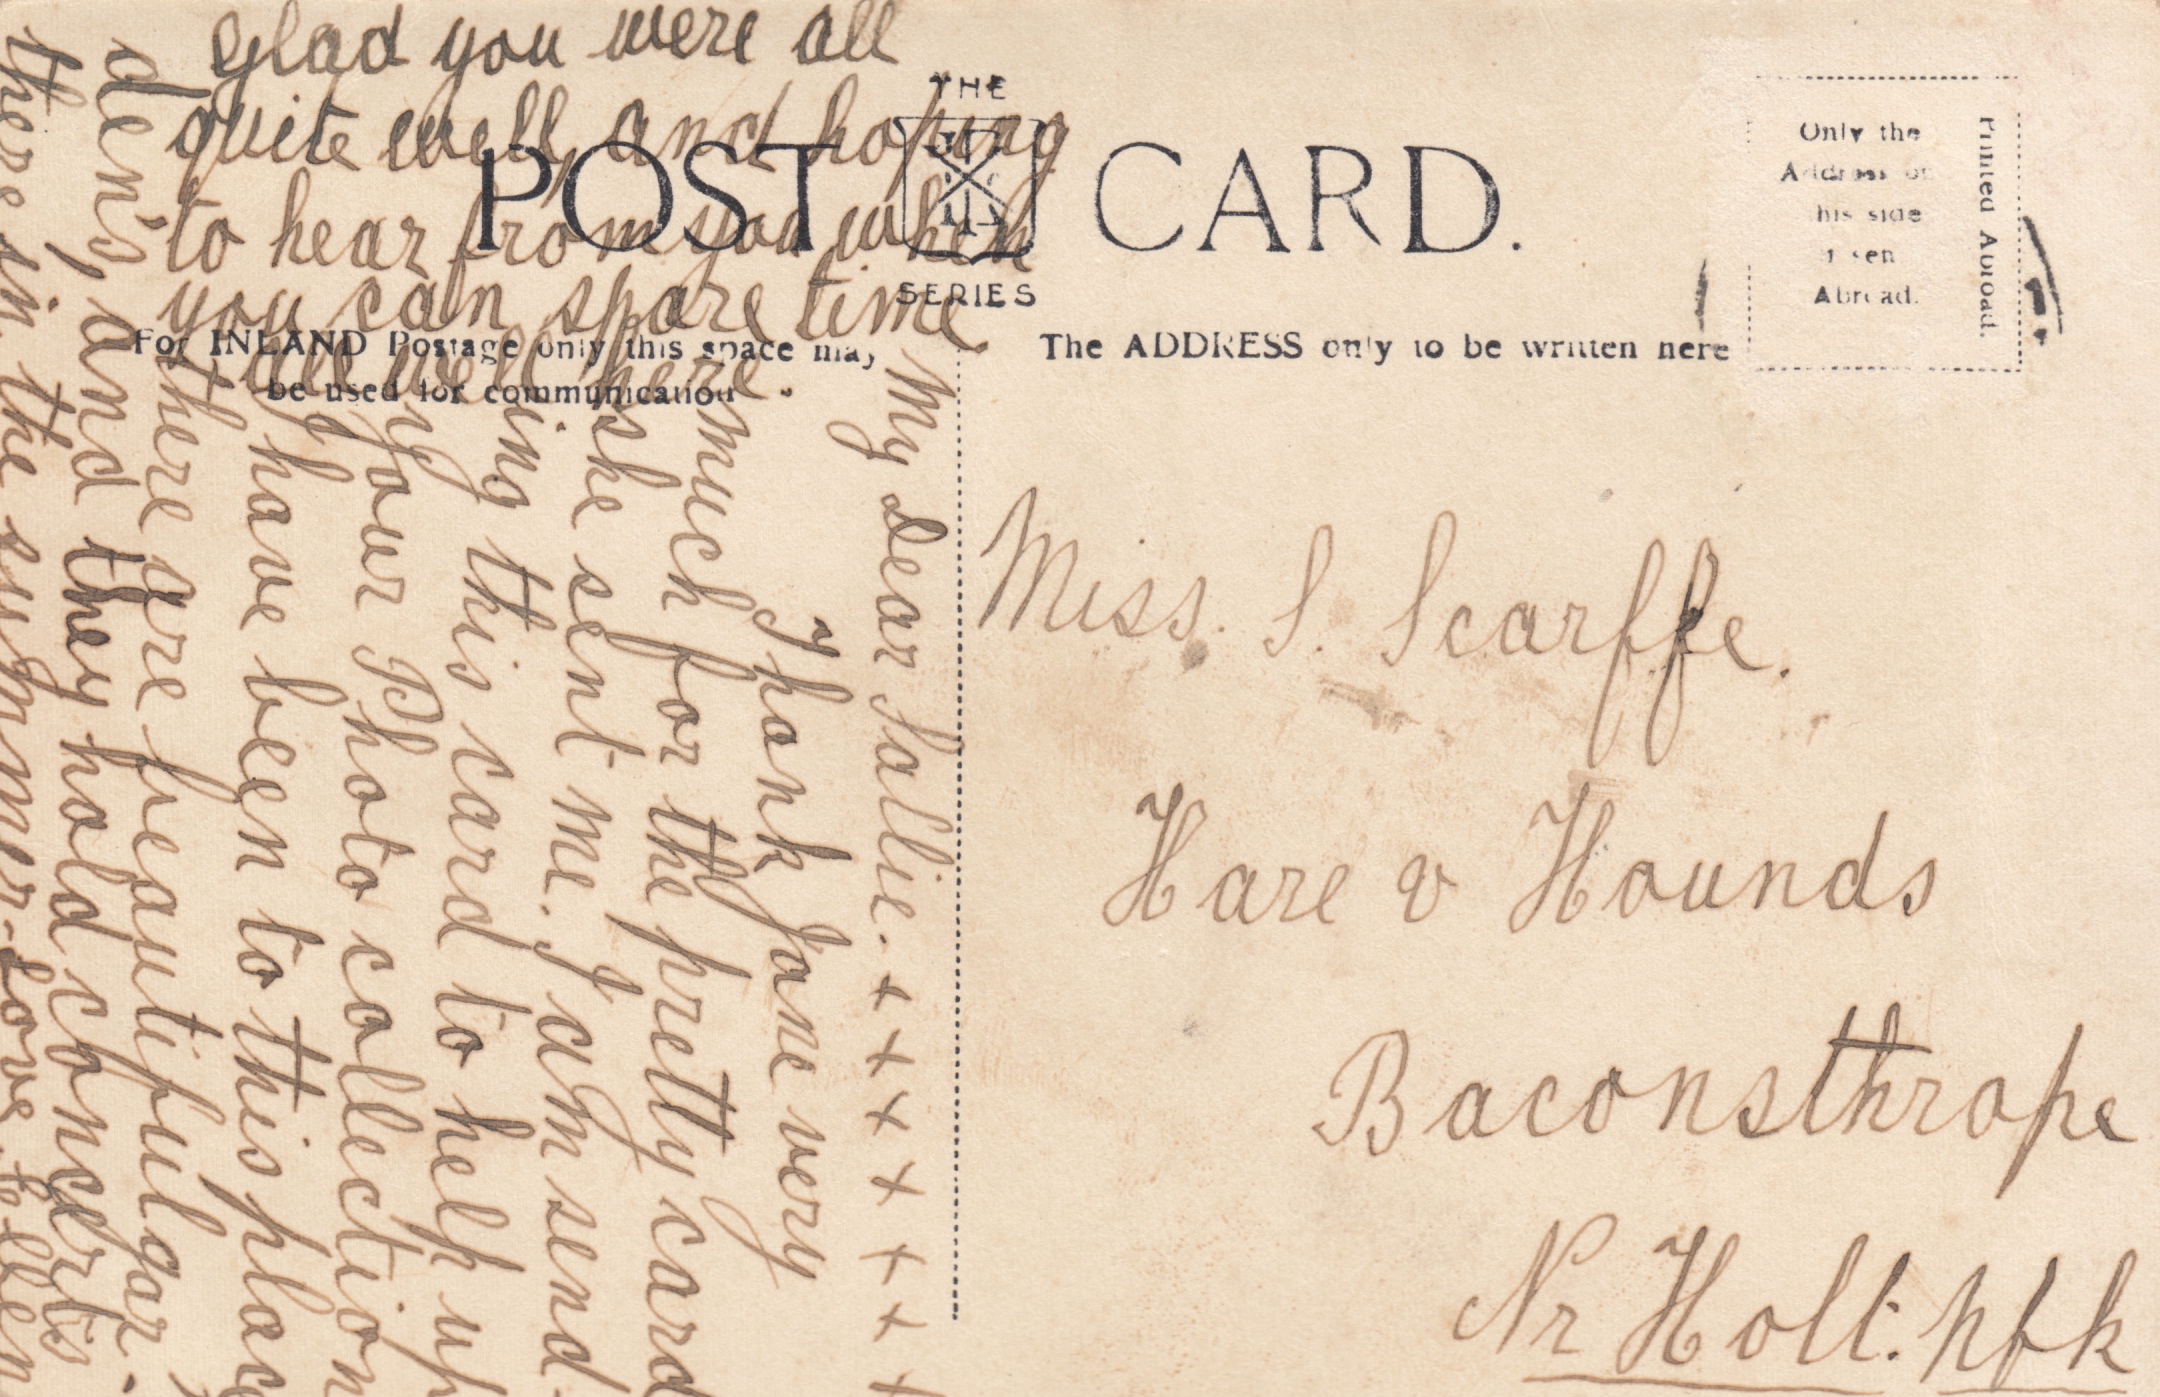 glad you were all
quite well, and hoping
to hear from you when
you can spare time
all well here.
THE
POST CARD.
SERIES
For INLAND Postage only this space may
be used for communication
The ADDRESS only to be written here
Only the
Address on
this side
when
Abroad.
Printed Abroad.
My dear Sallie. + + + + + + +
Thank Jane very
much for the pretty card
she sent me. I am send
ing this card to help up
your Photo collection
I have been to this place
there are beautiful gar
den's, and they hold concerts
there in the summer - Love to
Miss. S. Scarffe.
Hare & Hounds
Baconsthrope
Nr Holt. Nfk